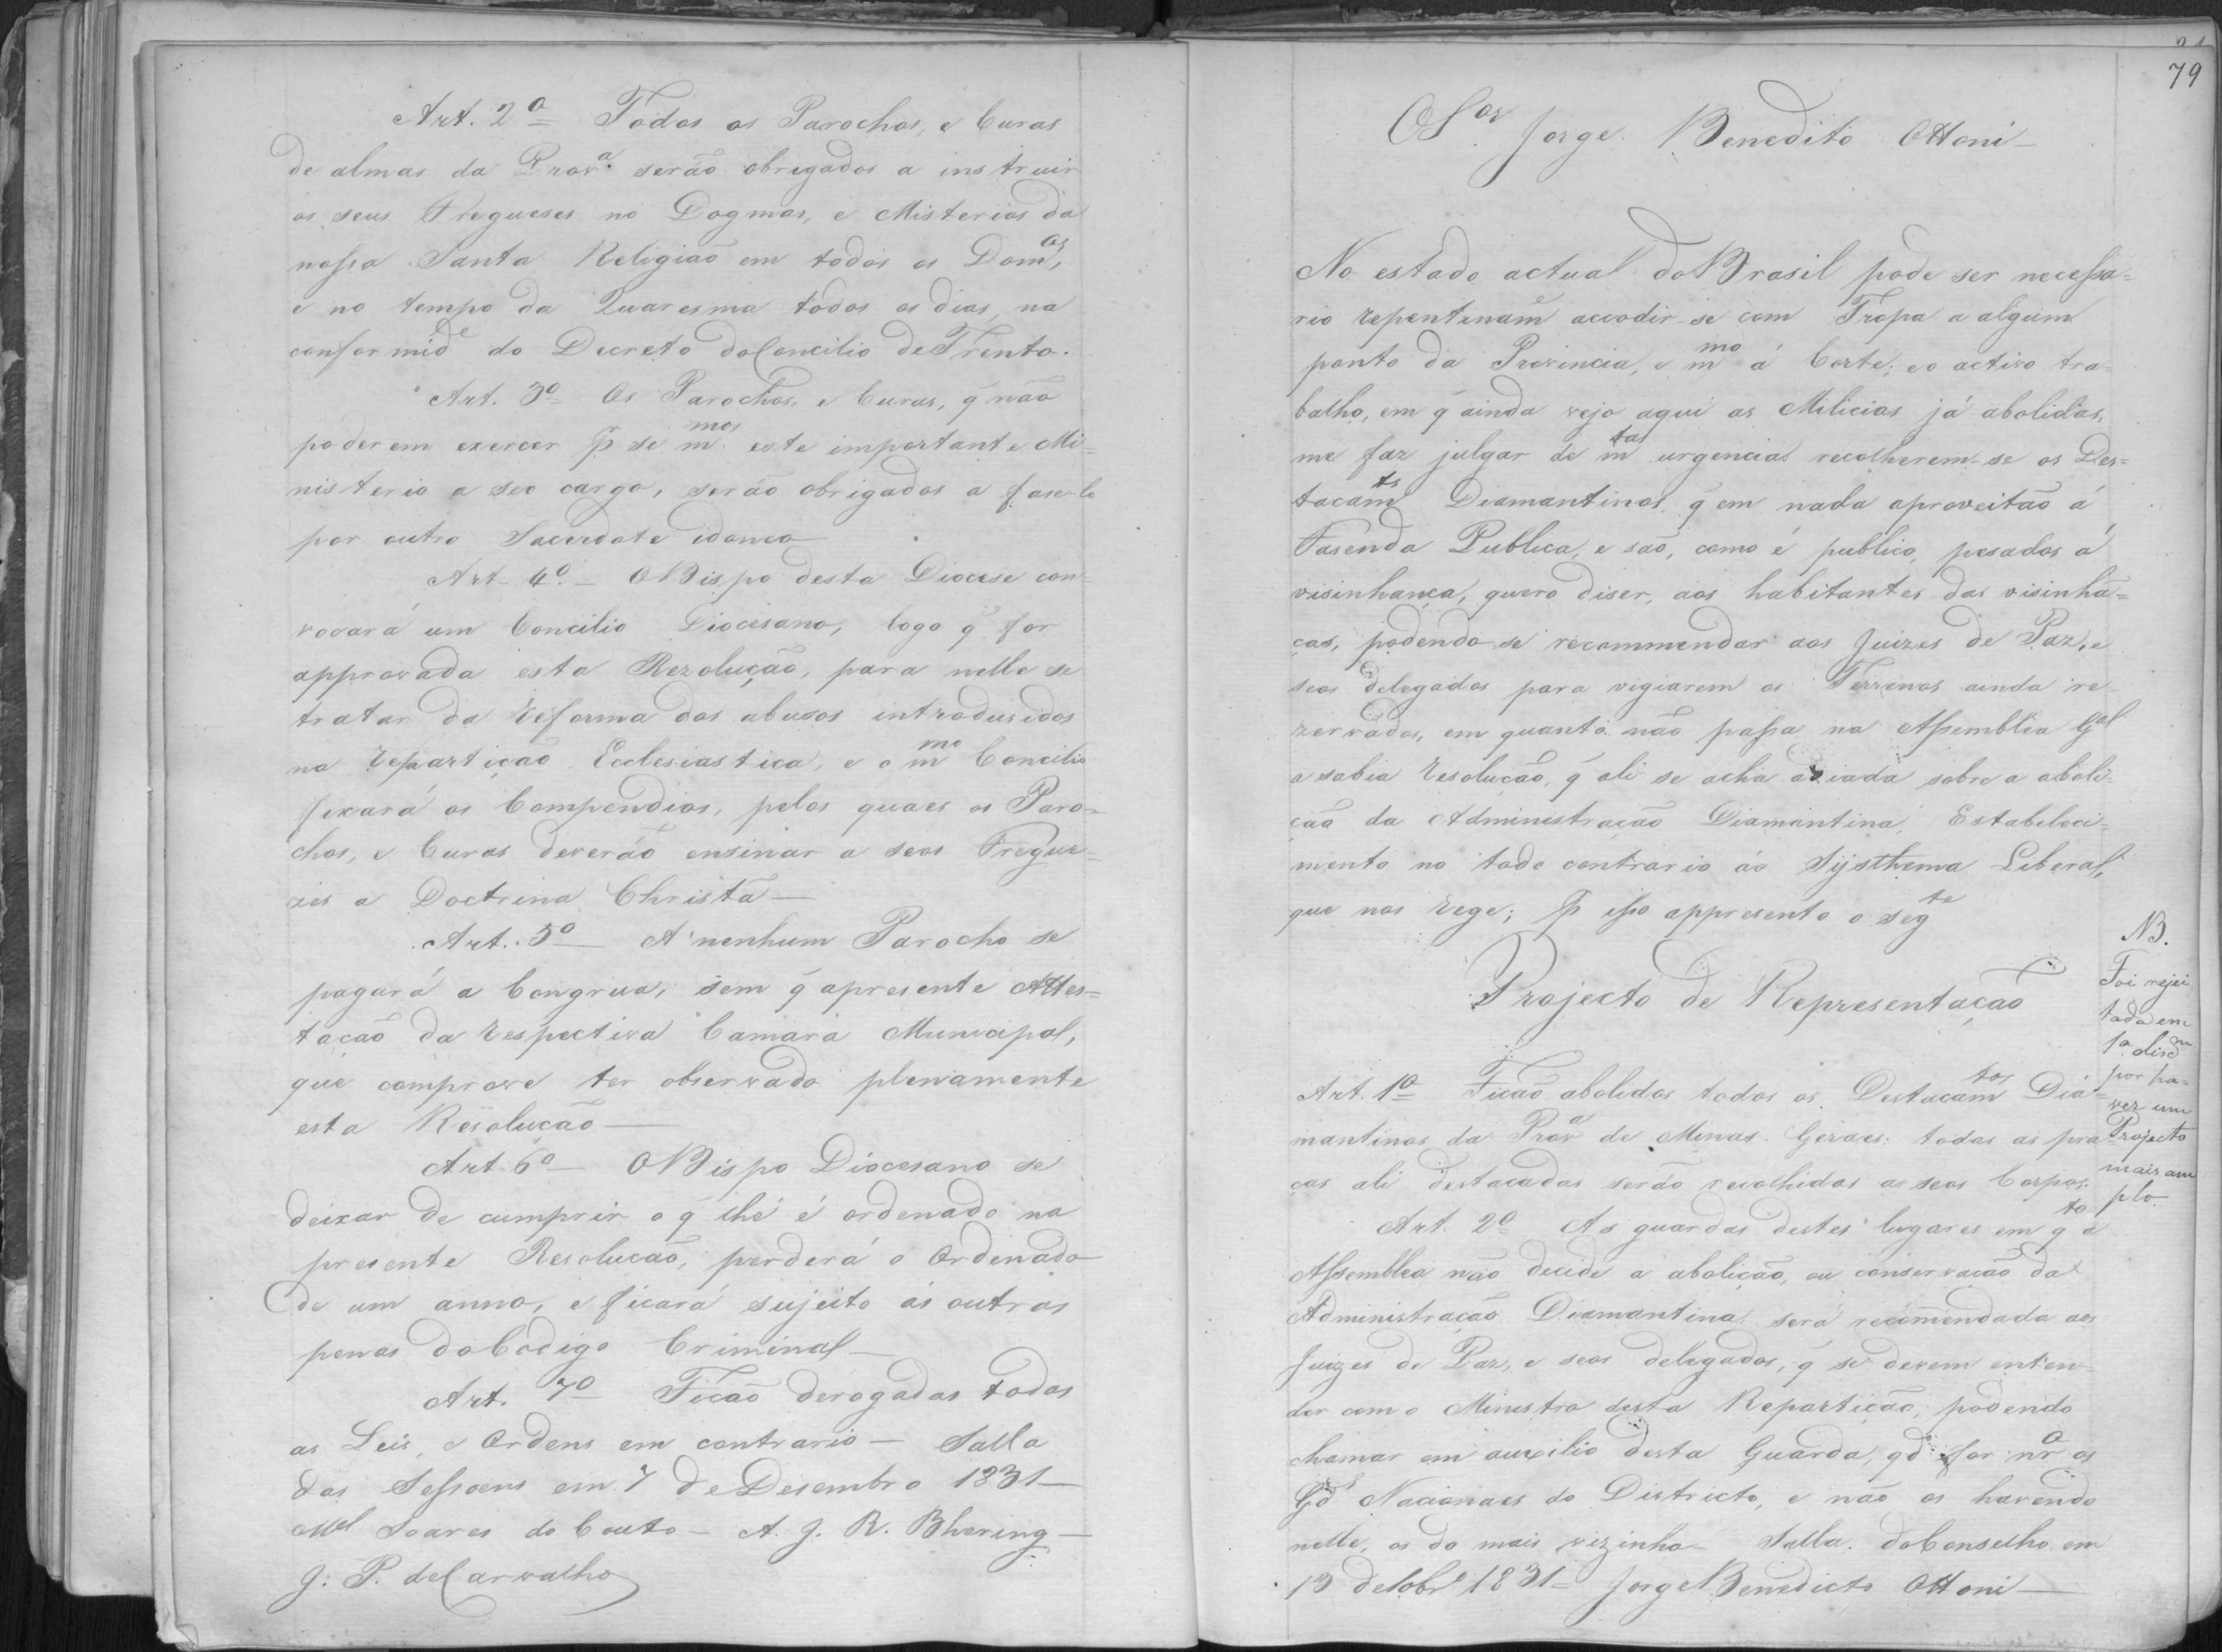 Art. 2º Todos os Parochos, e Curas
de almas da Prov.ª serão obrigados a instruir
os seus Fregueses no Dogmas, e Misterios da
nossa Santa Religião em todos os Dom.os,
e no tempo da Quaresma todos os dias, na
conformid.e do Decreto do Concilio de Trento.
Art. 3º Os Parochos, e Curas, q̃ não
poderem exercer p̃ se m.mos este importante Mi=
nisterio a seo cargo, serão obrigados a fase-lo
por outro Sacerdote idoneo
Art. 4º - O Bispo desta Diocese con=
vocará um Concilio Diocesano, logo q̃ for
approvada esta Rezolução, para nelle se
tratar da reforma dos abusos introdusidos
na repartição Ecclesiastica, e o m.mo Concilio
fixará os Compendios, pelos quaes os Paro=
chos, e Curas deverão ensinar a seos Fregue=
zes a Doctrina Christã —
Art. 5º A' nenhum Parocho se
pagará a Congrua, sem q̃ apresente Attes=
tação da respectiva Camara Municipal,
que comprove ter observado plenamente
esta Resolução —
Art. 6º — O Bispo Diocesano se
deixar de cumprir o q̃ lhe é ordenado na
presente Resolução, perderá o Ordenado
de um anno, e ficará sujeito ás outras
penas do Codigo Criminal —
Art. 7º Ficão derogadas todas
as Leis, e Ordens em contrario — Salla
das Sessoens em 7 de Desembro 1831 —
M.el Soares do Couto — A. J. R. Bhering —
J. P. de Carvalho
79
O S.or Jorge Benedito Ottoni —
No estado actual do Brasil pode ser necessa=
rio repentinam.e accodir-se com Tropa a algum
ponto da Provincia, e m.mo á Corte; e o activo tra=
balho, em q̃ ainda vejo aqui as Milicias já abolidas,
me faz julgar de m.ta urgencia recolherem-se os Des=
tacam.ts Diamantinos, q̃ em nada aproveitão á
Fasenda Publica, e são, como é publico, pesados á
visinhança, quero diser, aos habitantes das visinhã=
ças, podendo-se recommendar aos Juizes de Paz, e
seos delegados para vigiarem os Terrenos ainda re=
zervados, em quanto não passa na Assemblea G.al
a sabia resolução, q̃ ali se acha adiada sobre a aboli=
ção da Administração Diamantina, Estabeleci=
mento no todo contrario ao Sijsthema Liberal,
que nos rege; p̃ isso appresento o seg.te
Projecto de Representação
NB.
Foi rejei
tada em
1ª disc.m
por ha=
ver um
Projecto
mais am
plo.
Art. 1º Ficão abolidos todos os Destacam.tos Dia=
mantinos da Prov.ª de Minas Geraes: todas as pra=
ças ali destacadas serão recolhidas a seos Corpos.
Art. 2º As guardas destes lugares em q.to a
Assemblea não decide a abolição, ou conservação da
Administração Diamantina será recomendada aos
Juizes de Paz, e seos delegados, q̃ se devem enten=
der com o Ministro desta Repartição, podendo
chamar em auxilio desta Guarda, qd.o for nr.o os
G.ds Nacionaes do Districto, e não os havendo
nelle, os do mais vizinho — Salla do Conselho em
13 de 1831 — Jorge Benedicto Ottoni —